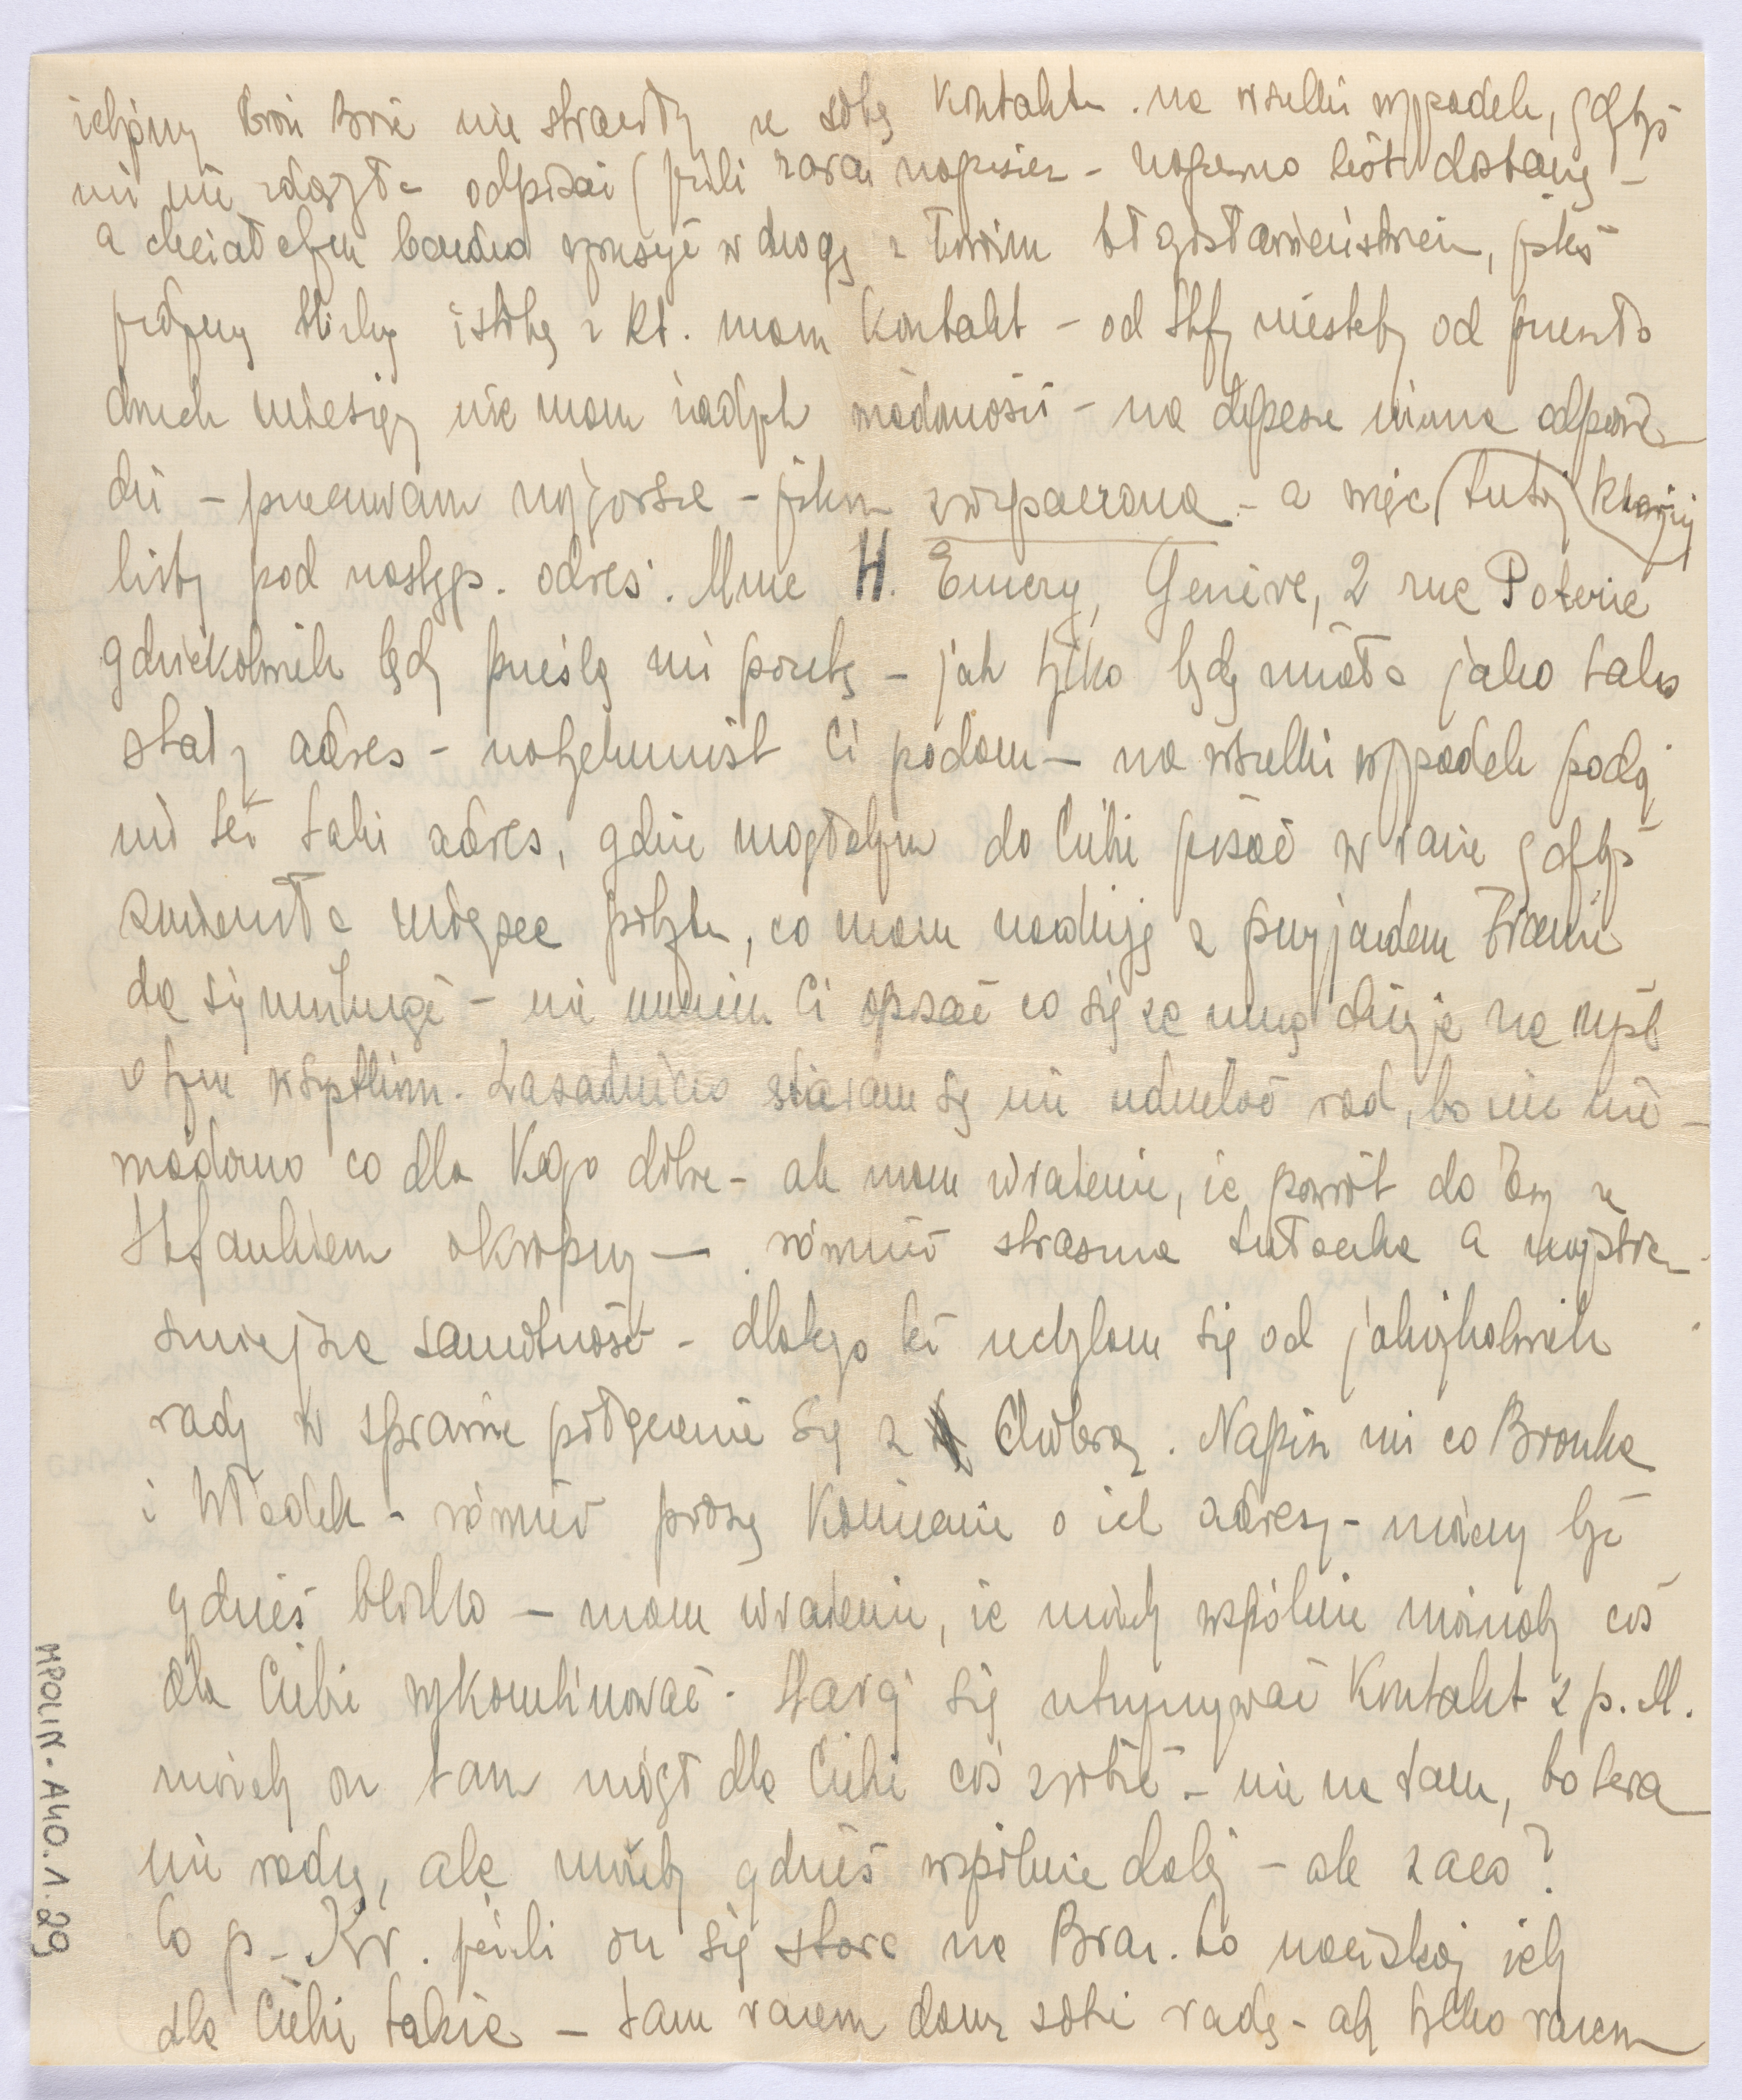 żebyśmy broń Boże nie straciły ze sobą kontaktu. na wszelki wypadek, gdybyś
mi nie zdążyła odpisać (jeśli zaraz napiszesz - napewno list dostanę -
a chciałabym bardzo wyruszyć w drogę z Twoim błogosławieństwem, jako
jedyną bliską istotę z kt. mam kontakt - od Stefy niestety od przeszło
dwuch miesięcy nie mam żadnych wiadomości - na depesze niema odpowie-
dzi - przeczuwam najgorsze - jestem zrozpaczona - a więc tutaj kieruj
listy pod następ. adres: Mme H. Emery, Genève, 2 rue Poterie
gdziekolwiek będę prześlą mi pocztę - jak tylko będę miała jako tako
stały adres - natychmiast Ci podam - na wszelki wypadek podaj
mi też taki adres, gdzie mogłabym do Ciebie pisać w razie gdybyś
zmieniła miejsce pobytu, co mam nadzieję z przyjazdem Frani
da się uskutecznić - nie umiem Ci opisać co się ze mną dzieje na myśl
o tym wszystkim. Zasadniczo staram się nie udzielać rad, bo nic nie-
wiadomo co dla kogo dobre - ale mam wrażenie, że powrót do Ewy ze
Stefankiem okropny - również straszna tułaczka a najstra-
szniejsza samotność - dlatego też uchylam się od jakiejkolwiek
rady w sprawie połączenia się z Chaberą. Napisz mi co Bronka
i Władek - również proszę koniecznie o ich adresy - możemy być
gdzieś blisko - mam wrażenie, że może by wspólnie można by coś
dla Ciebie wykombinować. Staraj się utrzymywać kontakt z p. M.
może by on tam mógł dla Ciebie coś zrobić - nie na tam, bo teraz
nie radzę, ale może by gdzieś wspólnie dalej - ale zaco?
Co p. Kr. jeżeli on się stara na Braz. to naciskaj żeby
dla Ciebie także - tam razem damy sobie radę - aby tylko razem
MPOLIN-A40.1.29